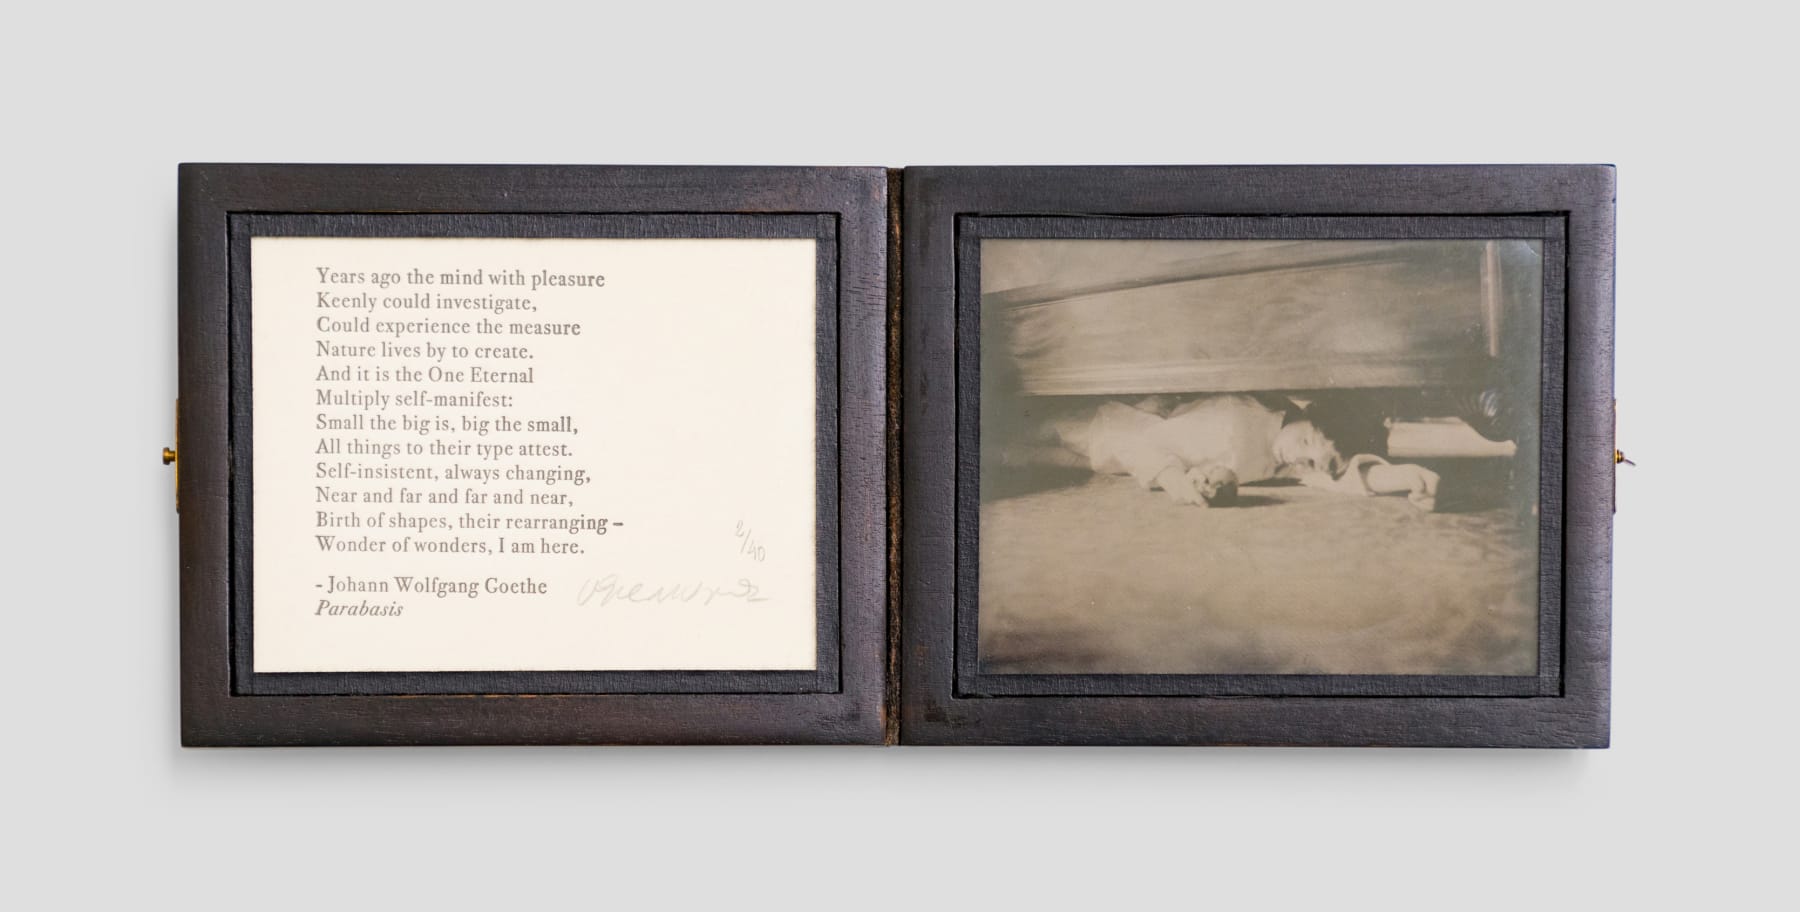 Years ago the mind with pleasure
Keenly could investigate,
Could experience the measure
Nature lives by to create.
And it is the One Eternal
Multiply self-manifest:
Small the big is, big the small,
All things to their type attest.
Self-insistent, always changing,
Near and far and far and near,
Birth of shapes, their rearranging –
Wonder of wonders, I am here.
- Johann Wolfgang Goethe
Parabasis
2/40